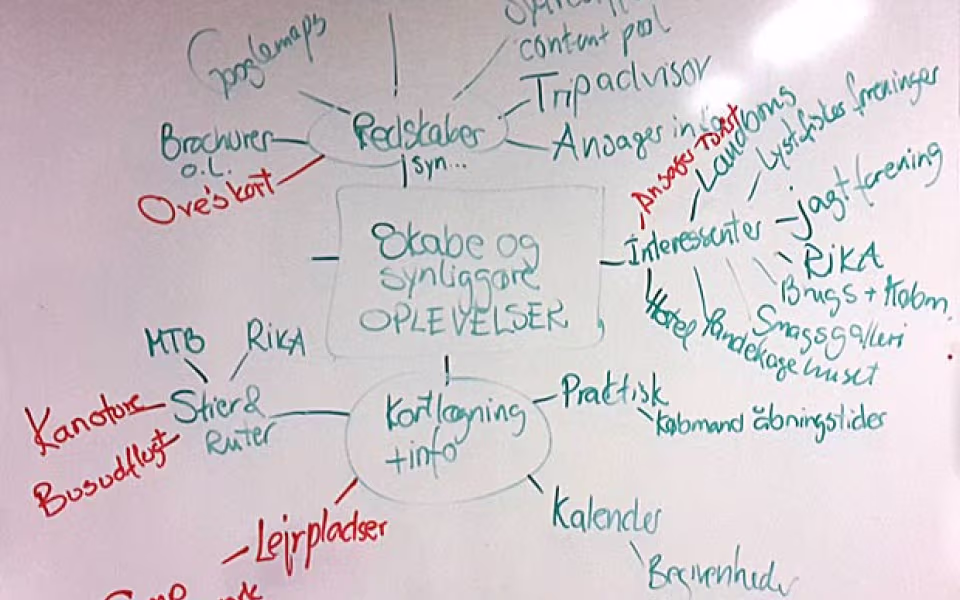 Googlemaps
content pool
Tripadvisor
Brochurer
o.l.
Redskaber
Ansager
Ove's kort
Syn...
Ansager Toast
Landboms
Lystfisker foreninger
Jagtforening
Skabe og
synliggøre
OPLEVELSER
Interessenter
RIKA
Brugs + Købm.
Smagsgalleri
Pandekagehuset
Hotel
MTB
RIKA
Stier &
Ruter
Kanoture
Busudflugt
Kortlægning
+info
Praktisk
Købmand åbningstider
Kalender
Begivenheder
Lejrpladser